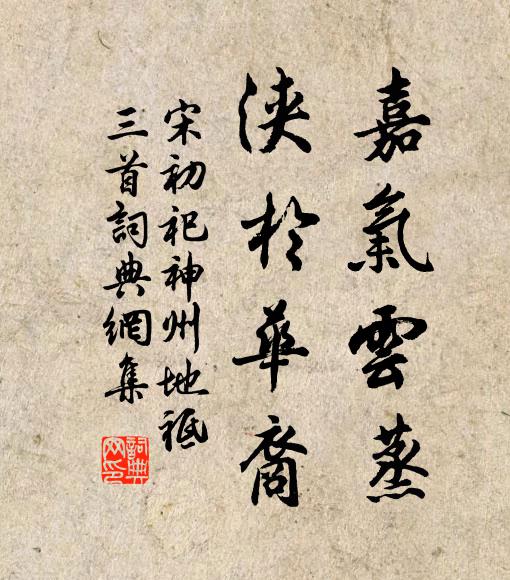 嘉氣雲蒸
浹於華裔
宋初祀神州地祇
三首詞典網集
詞典网印